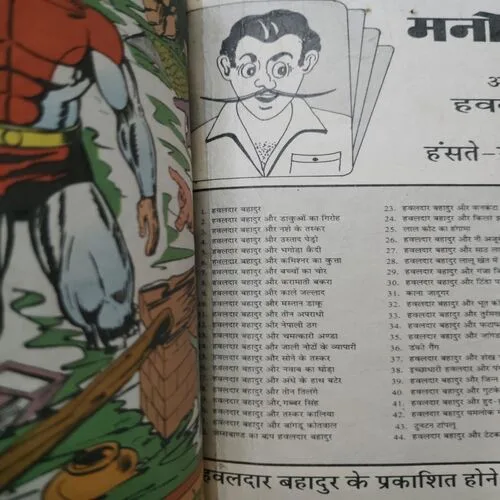 मनो
हवल
हंसते-
1. हवलदार बहादुर
2. हवलदार बहादुर और डाकुओं का गिरोह
3. हवलदार बहादुर और नशे के तस्कर
4. हवलदार बहादुर और उस्ताद पेड्रो
5. हवलदार बहादुर और भगोड़ा कैदी
6. हवलदार बहादुर और कमिश्नर का कुत्ता
हवलदार बहादुर और बच्चों का चोर
हवलदार बहादुर और करामाती बकरा
हवलदार बहादुर और काले जल्लाद
हवलदार बहादुर और मस्तान डाकू
हवलदार बहादुर और तीन अपराधी
हवलदार बहादुर और नेपाली ठग
हवलदार बहादुर और चमत्कारी अण्डा
हवलदार बहादुर और जाली नोटों के व्यापारी
हवलदार बहादुर और सोने के तस्कर
हवलदार बहादुर और नवाब का घोड़ा
हवलदार बहादुर और अंधे के हाथ बटेर
हवलदार बहादुर और तीन तिलंगे
हवलदार बहादुर और गब्बर सिंह
हवलदार बहादुर और तस्कर कालिया
हवलदार बहादुर और बांगडू कोतवाल
हवलदार बहादुर
23. हवलदार बहादुर और कनकटा
24. हवलदार बहादुर और किला
25. लाल कोट का हंगामा
26. हवलदार बहादुर और नौ अजू
27. हवलदार बहादुर और साठ ला
28. हवलदार बहादुर लालू खेत में
29. हवलदार बहादुर और गंजा जि
30. हवलदार बहादुर और टिंडा प
31. काना जादूगर
32. हवलदार बहादुर और भूत क
33. हवलदार बहादुर और
34. हवलदार बहादुर और फटा
35. हवलदार बहादुर और जांगड
36. डंको गैंग
37. हवलदार बहादुर और शंख
38. इच्छाधारी हवलदार और प
39. हवलदार बहादुर और जिन्न
40. हवलदार बहादुर और गुटके
41. हवलदार बहादुर और हुद-हु
42. हवलदार बहादुर यमलोक
43. टुनटन टोपलू
44. हवलदार बहादुर और टेटक
हवलदार बहादुर के प्रकाशित होने